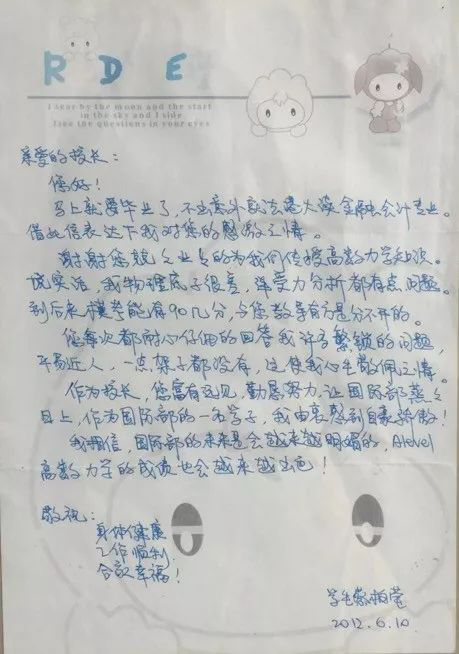 RDE
I sear by the moon and the start
in the sky and I side
I see the questions in your eyes
亲爱的校长：
您好！
马上就要毕业了，不出意外我法悉大读金融会计专业。
借此信表达下我对您的感激之情。
谢谢您兢兢业业的为我们传授高数力学知识。
说实话，我物理底子很差，连受力分析都有点问题。
到后来模考能有90几分，与您教导有方是分不开的。
您每次都耐心仔细的回答我许多繁锁的问题，
平易近人，一点架子都没有，这使我心生敬佩之情。
作为校长，您富有远见，勤恳努力，让国际部蒸蒸
日上，作为国际部的一名学子，我由衷感到自豪骄傲！
我相信，国际部的未来是会越来越明媚的，Alevel
高数力学的成绩也会越来越出色！
敬祝：
身体健康
工作顺利
合家幸福！
学生
2012.6.10